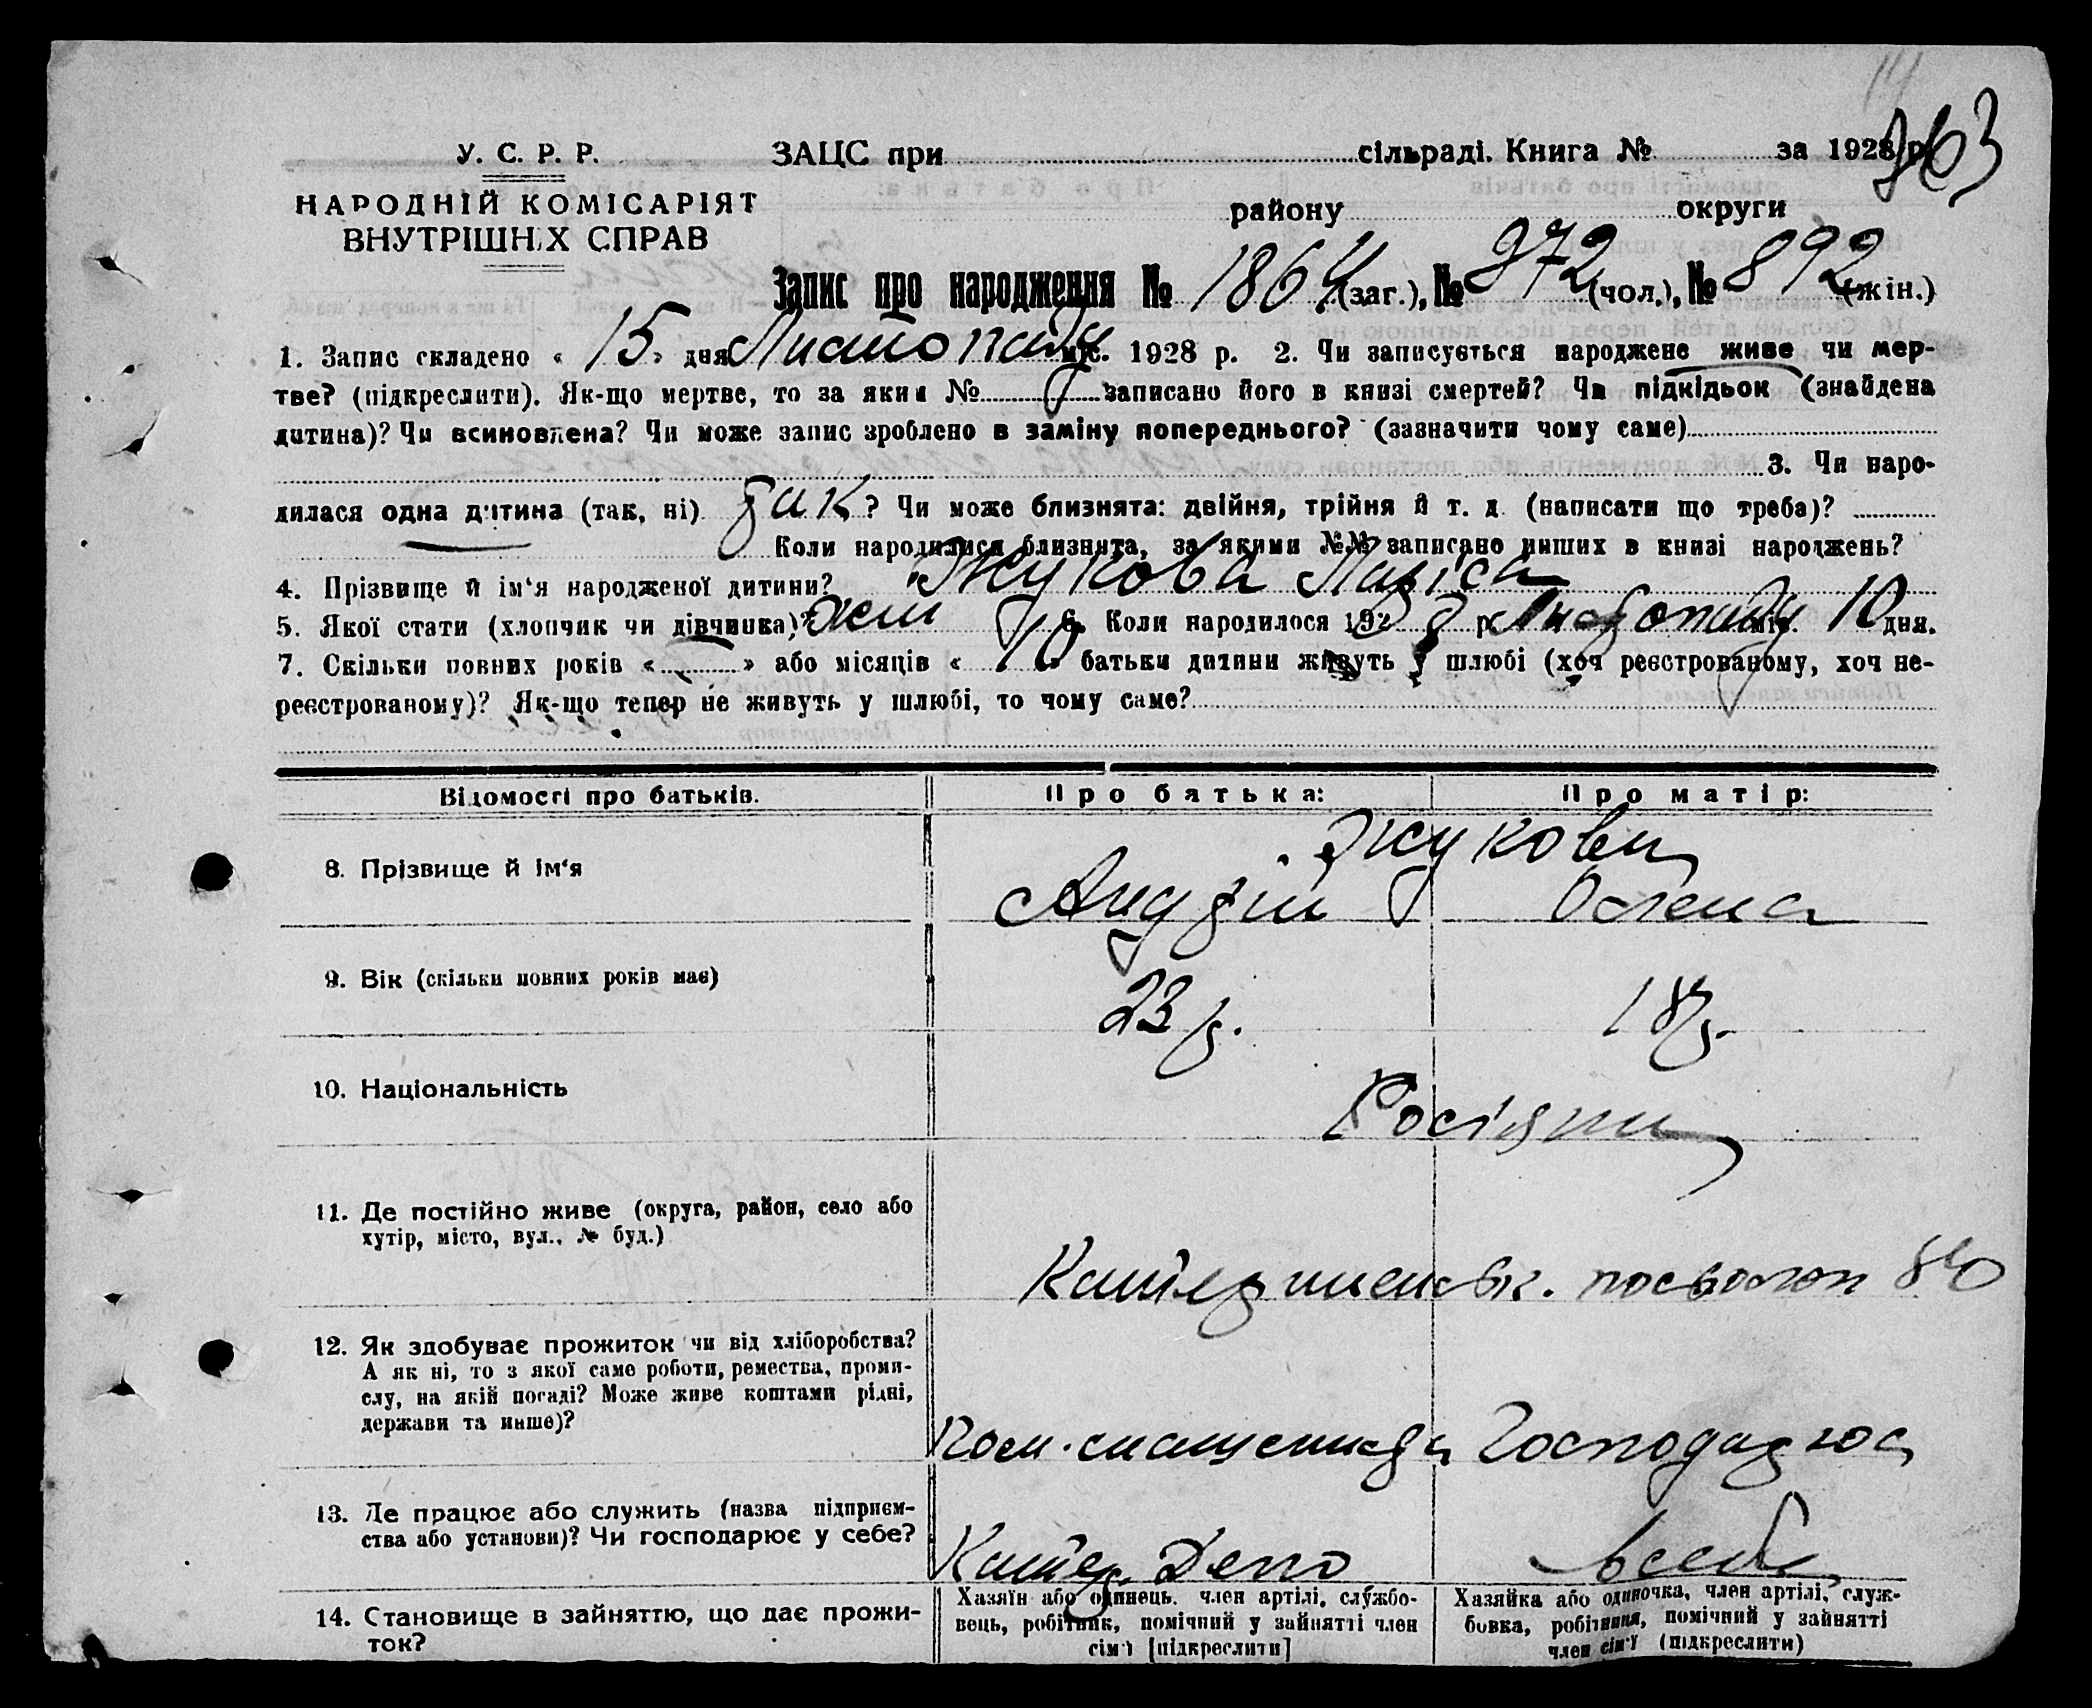 14
863
У. С. Р. Р.
НАРОДНІЙ КОМІСАРІЯТ
ВНУТРІШНІХ СПРАВ
ЗАЦС при сільраді. Книга № за 1928 р.
району округи
Запис про народження № 1864 (заг.), № 972 (чол.), № 892 (жін.)
1. Запис складено « 15 » дня Листопаду міс. 1928 р. 2. Чи записується народжене живе чи мер-
тве? (підкреслити). Як-що мертве, то за яким № записано його в книзі смертей? Чи підкідьок (знайдена
дитина)? Чи всиновлена? Чи може запис зроблено в заміну попереднього? (зазначити чому саме)
3. Чи наро-
дилася одна дитина (так, ні) так ? Чи може близнята: двійня, трійня й т. д. (написати що треба)?
Коли народилися близнята, за якими №№ записано инших в книзі народжень?
4. Прізвище й ім‘я народженої дитини? Жукова Лариса
5. Якої стати (хлопчик чи дівчинка)? жін 6. Коли народилося 1928 р. Листопаду міс. 10 дня.
7. Скільки повних років « » або місяців « 10 » батьки дитини живуть у шлюбі (хоч реєстрованому, хоч не-
реєстрованому)? Як-що тепер не живуть у шлюбі, то чому саме?
Відомості про батьків. Про батька: Про матір:
Жукови
8. Прізвище й ім‘я Андрій Олена
9. Вік (скільки повних років має) 23 р. 18 р.
10. Національність Росіяни
11. Де постійно живе (округа, район, село або
хутір, місто, вул., № буд.)
Катерининськ. 80
12. Як здобуває прожиток чи від хліборобства?
А як ні, то з якої саме роботи, ремества, проми-
слу, на якій посаді? Може живе коштами рідні,
держави та инше)?
Пом. Господарює
13. Де працює або служить (назва підприєм-
ства або установи)? Чи господарює у себе?
Катер. Депо в себе
14. Становище в зайняттю, що дає прожи-
ток?
Хазяїн або одинець, член артілі, службо-
вець, робітник, помічний у зайнятті член
сім‘ї [підкреслити]
Хазяйка або одиночка, член артілі, служ-
бовка, робітниця, помічний у зайнятті
член сім‘ї (підкреслити)